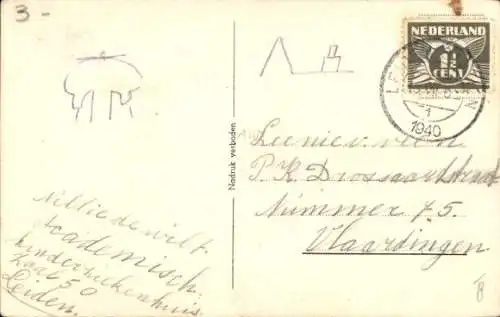 3-
NEDERLAND
1½
CENT
1940
Nadruk verboden
Leenie v. veen
P.K. Drossaartstraat
Nummer 75.
Vlaardingen
Nellie de wilt
academisch
kinderziekenhuis
Zaal 50
Leiden.